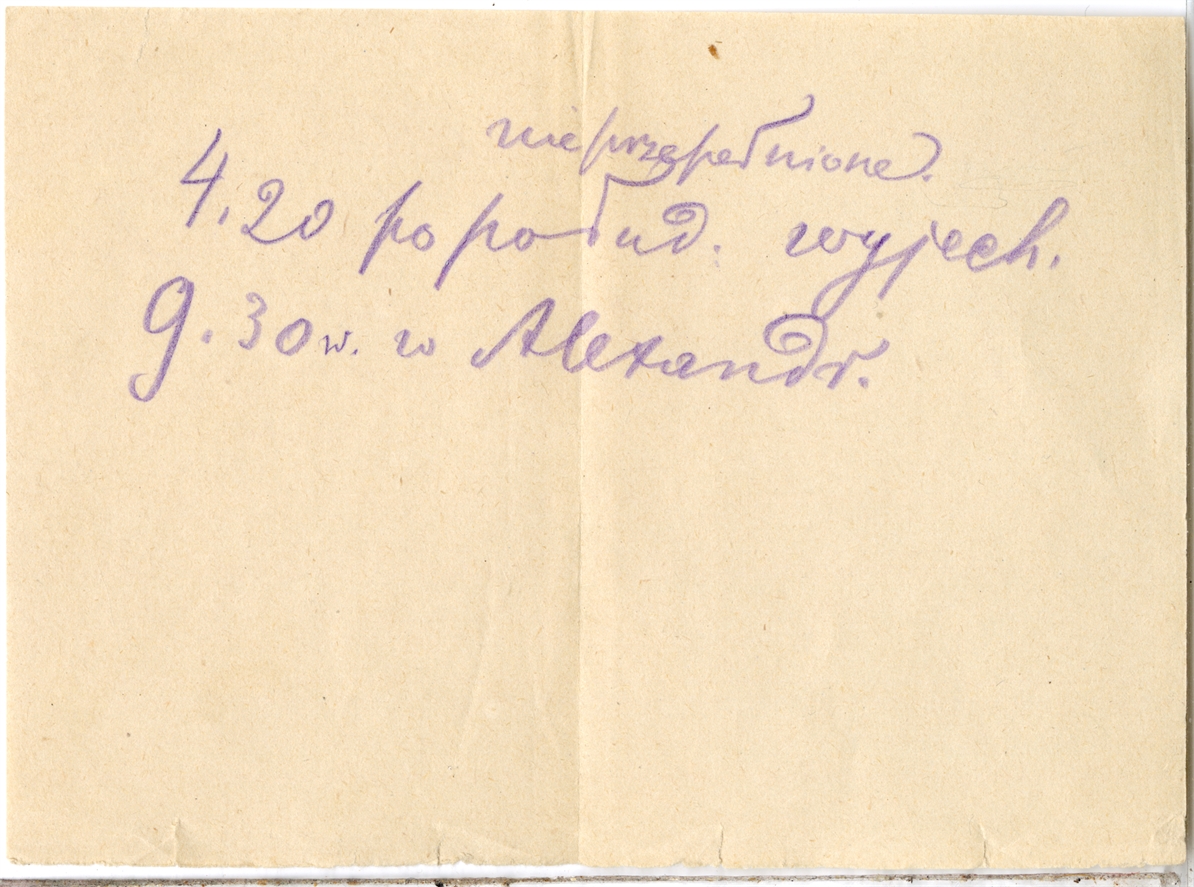 nieprzepełnione.
4.20 popołud. wyjech.
9.30 w. w Alexandr.